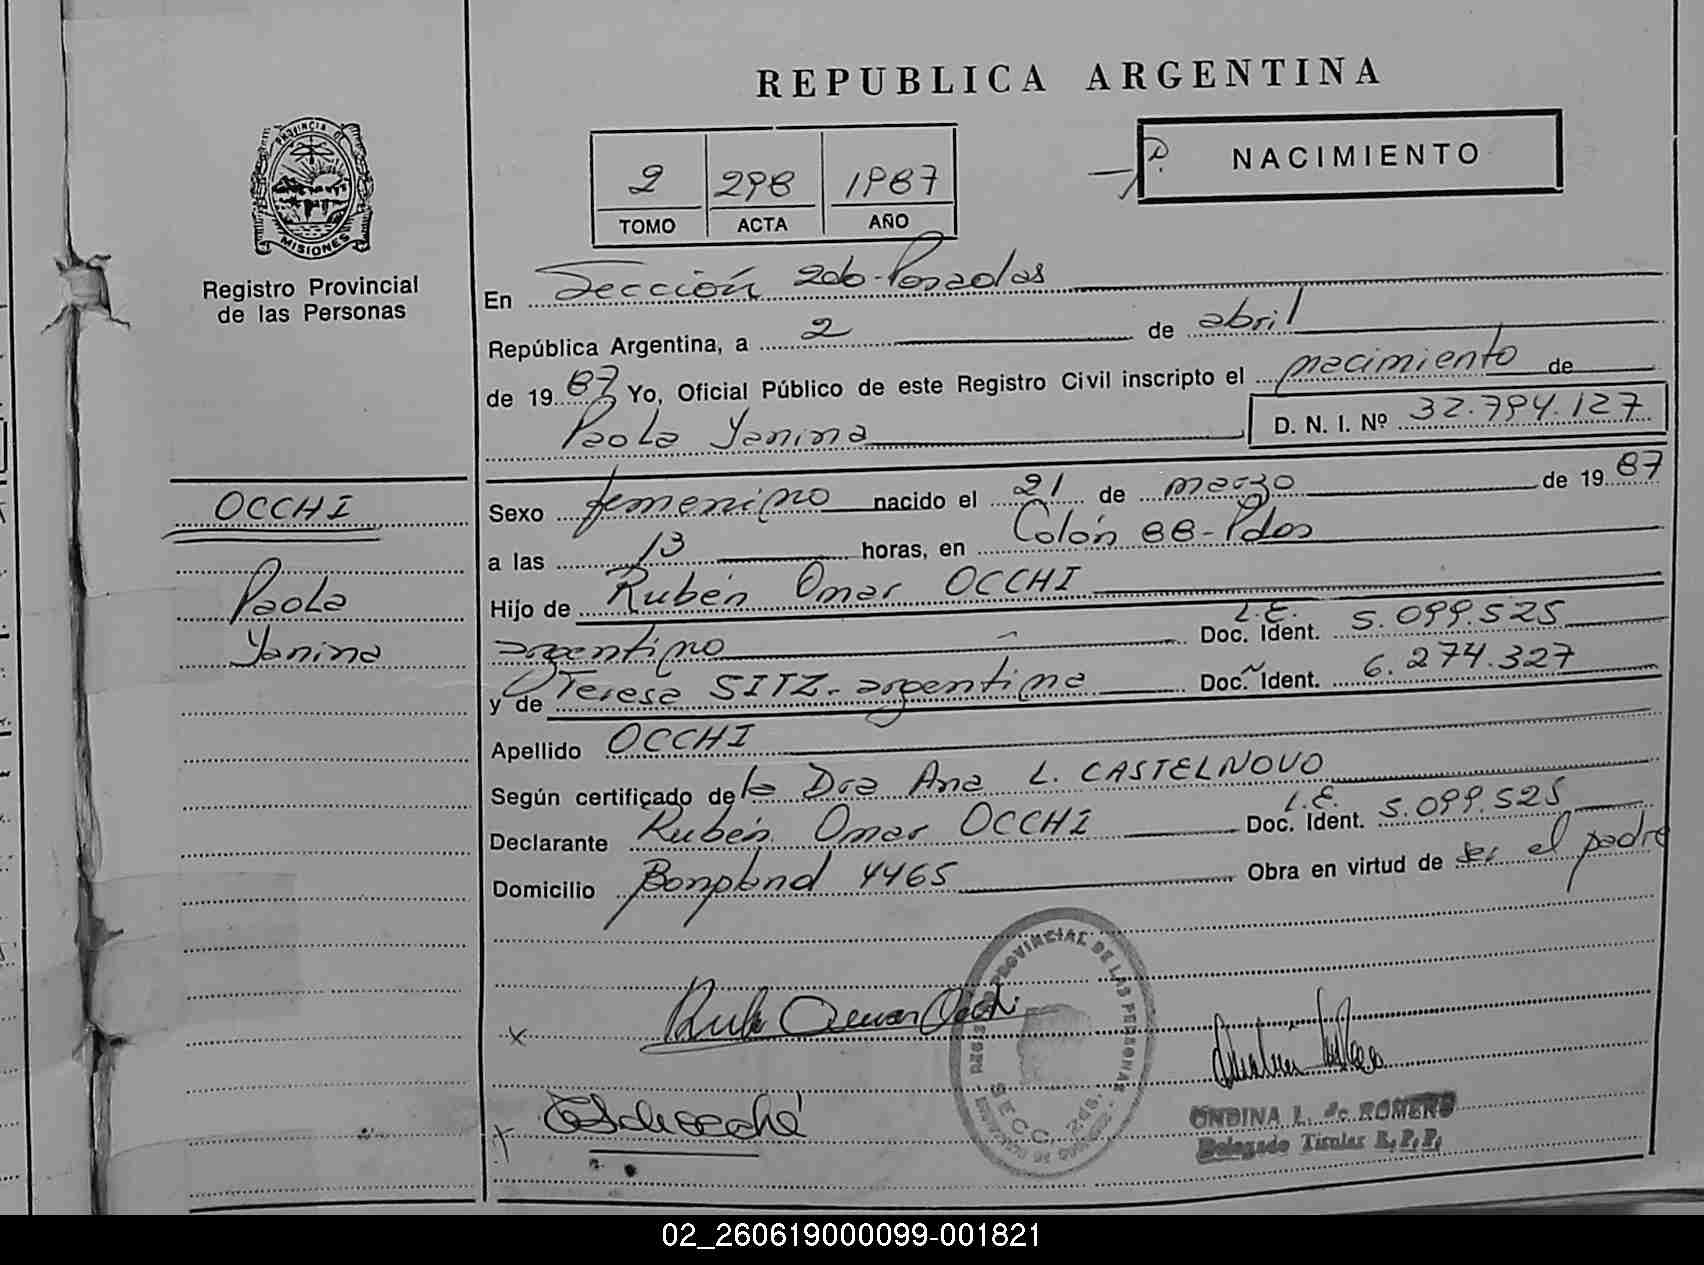 REPUBLICA ARGENTINA
NACIMIENTO
2 298 1987
TOMO ACTA AÑO
PROVINCIA DE
MISIONES
Registro Provincial
de las Personas
En Sección 2da-Posadas
República Argentina, a 2 de abril
de 19 87 Yo, Oficial Público de este Registro Civil inscripto el nacimiento de
Paola Yanina D. N. I. Nº 32.794.127
OCCHI
Paola
Yanina
Sexo femenino nacido el 21 de marzo de 19 87
a las 13 horas, en Colón 88-Pdas
Hijo de Rubén Omar OCCHI
argentino Doc. Ident. L.E. 5.099.525
y de Teresa SITZ-argentina Doc. Ident. 6.274.327
Apellido OCCHI
Según certificado de la Dra Ana L. CASTELNOVO
Declarante Rubén Omar OCCHI Doc. Ident. L.E. 5.099.525
Domicilio Bonpland 4465 Obra en virtud de ser el padre
PROVINCIAL DE LAS PERSONAS
SECC. 2da.
ONDINA L. de ROMERO
Delegado Titular R.P.P.
02_260619000099-001821